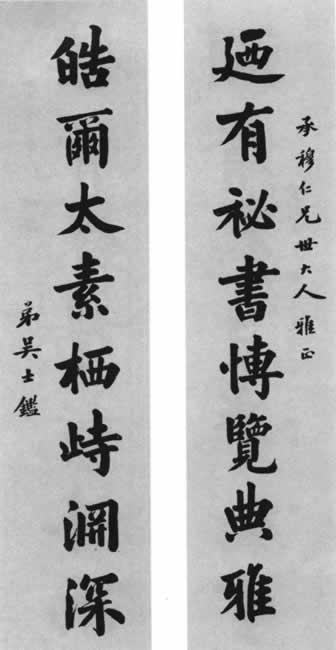 承穆仁兄世大人雅正
廼有祕書愽覽典雅
皓爾太素栖峙淵深
弟吴士鑑